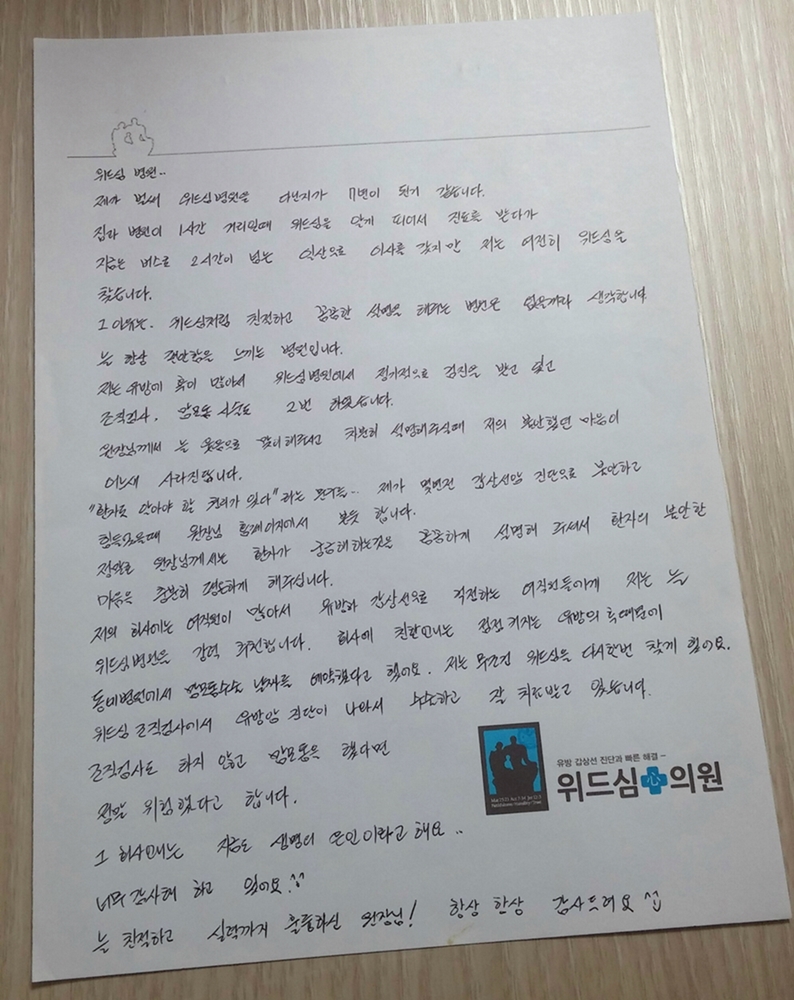 위드심 병원..
제가 벌써 위드심병원을 다닌지가 7년이 된거 같습니다.
집과 병원이 1시간 거리일때 위드심을 알게 되어서 진료를 받다가
지금은 버스로 2시간이 넘는 익산으로 이사를 갔지만 저는 여전히 위드심을
찾습니다.
그 이유는. 위드심처럼 친절하고 꼼꼼한 설명을 해주는 병원은 없을꺼라 생각합니다
늘 항상 편안함을 느끼는 병원입니다.
저는 유방에 혹이 많아서 위드심병원에서 정기적으로 검진을 받고 있고
조직검사, 맘모톰 시술도 2번 하였습니다.
원장님께서 늘 웃음으로 맞이해주시고 차분히 설명해주실때 저의 불안했던 마음이
어느새 사라진답니다.
"환자로 알아야 할 권리가 있다" 라는 문구를... 제가 몇년전 갑상선암 진단으로 불안하고
힘들었을때 원장님 홈페이지에서 본듯 합니다.
정말로 원장님께서는 환자가 궁금해하는것을 꼼꼼하게 설명해 주셔서 환자의 불안한
마음을 충분히 편안하게 해주십니다.
저의 회사에는 여직원이 많아서 유방과 갑상선으로 걱정하는 여직원들에게 저는 늘
위드심병원을 강력 추천합니다. 회사에 친한언니는 점점 커지는 유방의 혹때문에
동네병원에서 맘모톰수술 날짜를 예약했다고 했어요. 저는 무조건 위드심을 다시한번 찾게 했어요.
위드심 조직검사에서 유방암 진단이 나와서 수술하고 잘 치료받고 있습니다.
조직검사도 하지 않고 맘모톰을 했다면
정말 위험했다고 합니다.
그 회사언니는 지금도 생명의 은인이라고 해요..
너무 감사해 하고 있어요^^
늘 친절하고 실력까지 훌륭하신 원장님! 항상 항상 감사드려요^^
유방 갑상선 진단과 빠른 해결
위드심의원